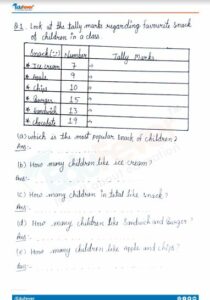 Edufever
Q1. Look at the tally marks regarding favourite snack
of children in a class
Snack(::) Number Tally Marks
* Ice cream 7
* Apple 9
* Chips 10
* Burger 15
* Sandwich 13
* chocolate 19
(a) which is the most popular snack of children?
Ans:-
(b) How many children like ice cream?
Ans:-
(c) How many children in total like snack?
Ans:-
(d) How many children like Sandwich and Burger?
Ans:-
(e) How many children like apple and chips?
Ans:-